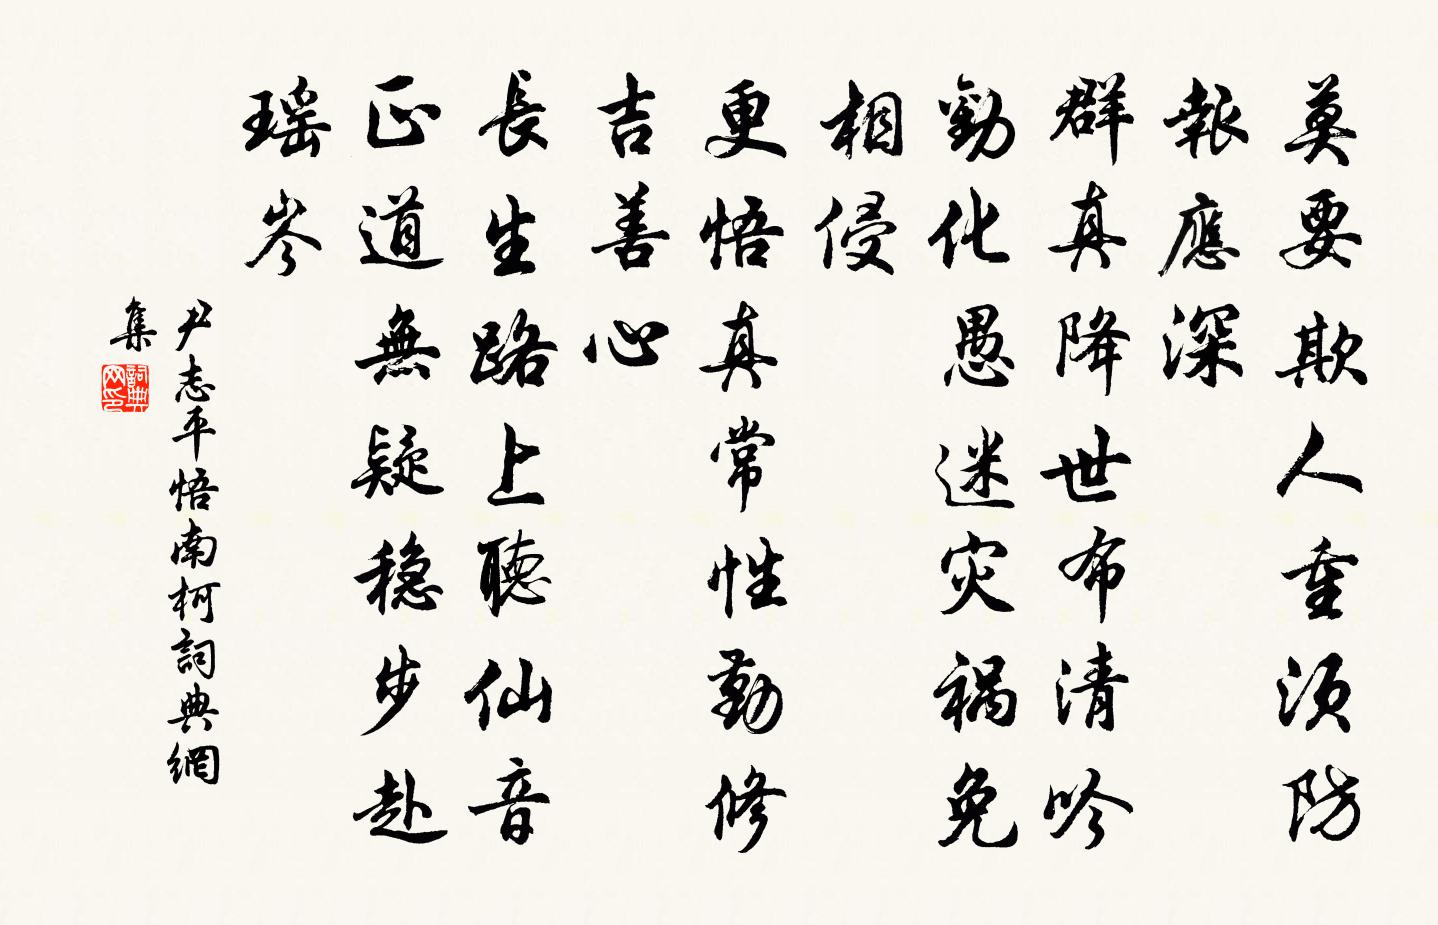 莫要欺人重須防
報應深
群真降世布清吟
勸化愚迷灾禍免
相侵
更悟真常性勤修
吉善心
長生路上聽仙音
正道無疑穩步赴
瑶岑
尹志平悟南柯詞典網
集
詞典
网印